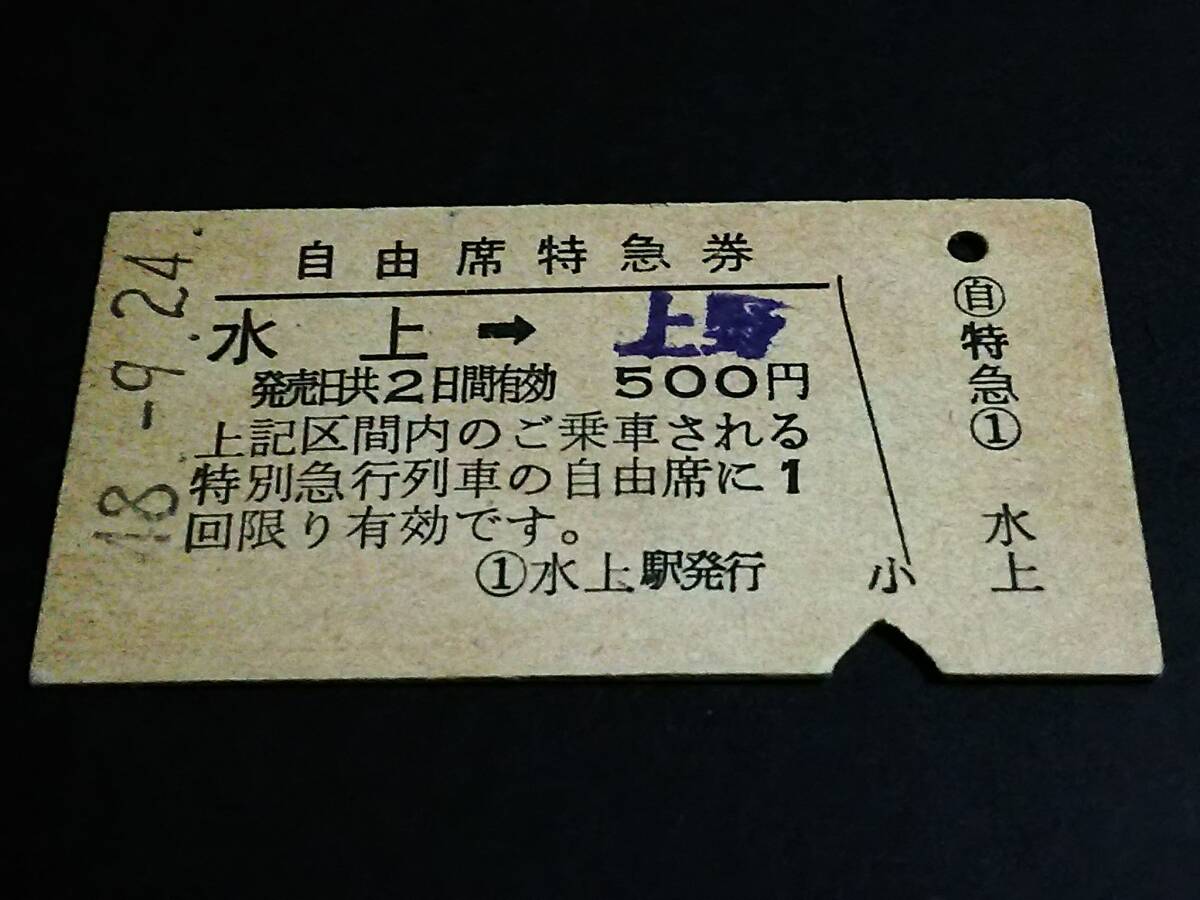 48.-9.24.
自由席特急券
水上➡上野
発売日共2日間有効 500円
上記区間内のご乗車される
特別急行列車の自由席に1
回限り有効です。
①水上駅発行
小
㊀特急①
水上